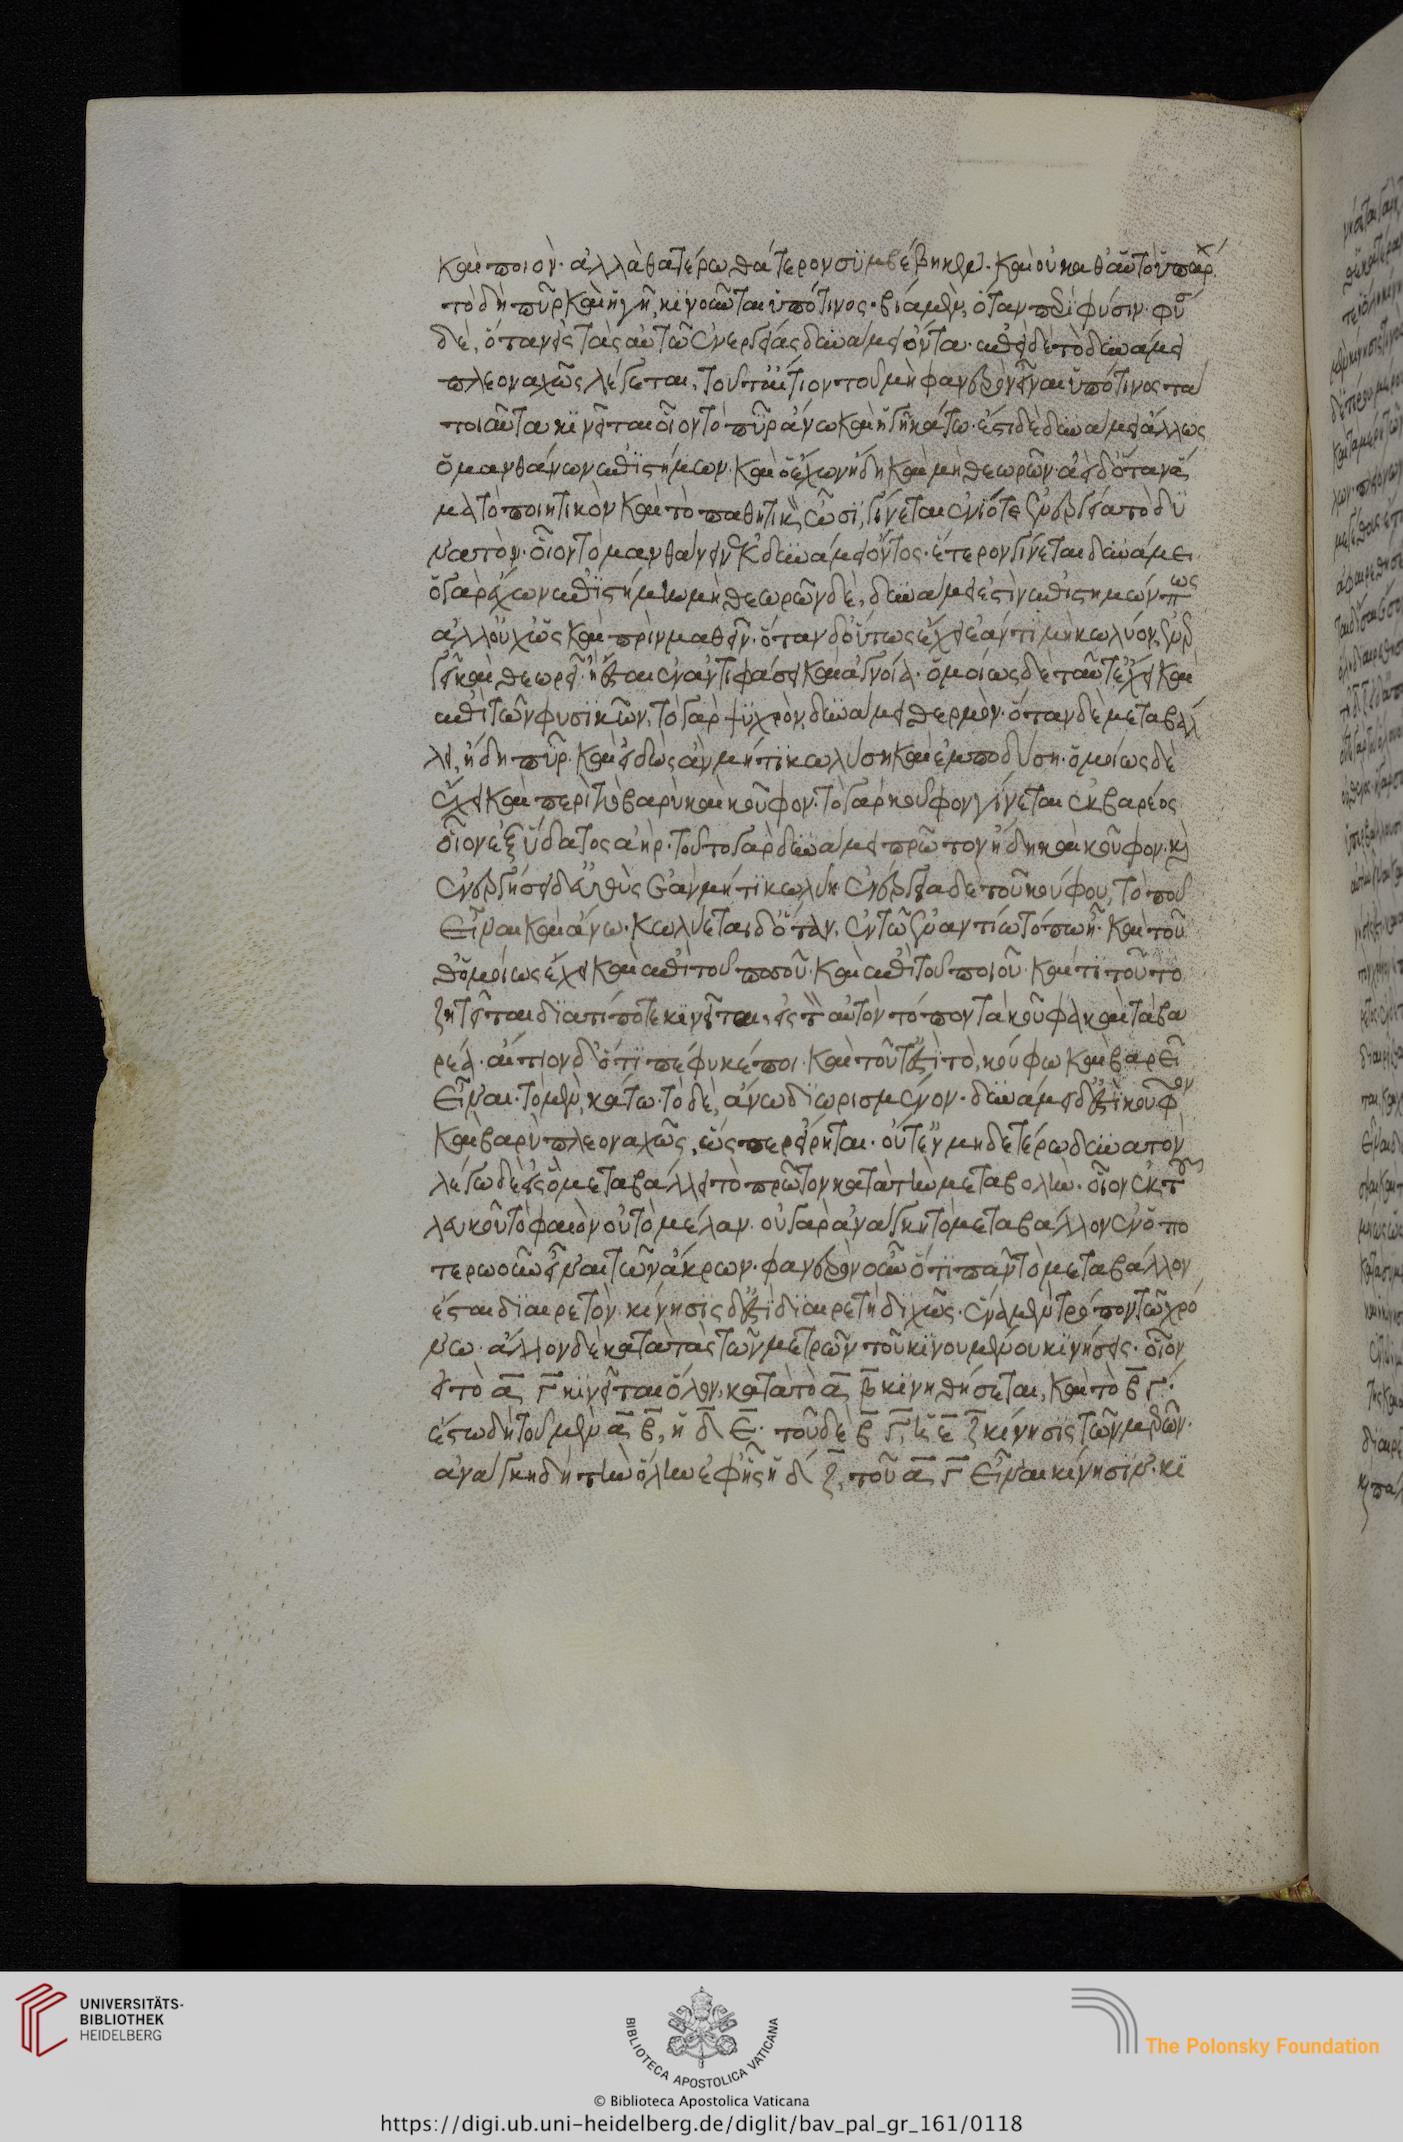 καὶ ποιὸν· ἀλλὰ θατέρω θάτερον συμβέβηκεν· καὶ οὐ καθ' αὑτὸ ὑπάρχ
τὸ δὴ πῦρ καὶ ἡ γῆ, κινοῦνται ὑπό τινος· βία μὲν, ὅταν παρὰ φύσιν· φύσ
δὲ, ὅταν εἰς τὰς αὐτῶν ἐνεργείας δυνάμει ὄντα· ἐπεὶ δὲ τὸ δυνάμει
πλεοναχῶς λέγεται, τοῦτ' αἴτιον τοῦ μὴ φανερὸν εἶναι ὑπό τινος τὰ
τοιαῦτα κινεῖται οἷον τὸ πῦρ ἄνω καὶ ἡ γῆ κάτω· ἔστι δὲ δυνάμει ἄλλως
ὁ μανθάνων ἐπιστήμων· καὶ ὁ ἔχων ἤδη καὶ μὴ θεωρῶν· ἀεὶ δ' ὅταν ἅ
μα τὸ ποιητικὸν καὶ τὸ παθητικὸν ὦσι, γίνεται ἐνίοτε ἐνεργεία τὸ δυ
νατὸν· οἷον τὸ μανθάνειν ἐκ δυνάμει ὄντος· ἕτερον γίνεται δυνάμει
ὁ γὰρ ἔχων ἐπιστήμην μὴ θεωρῶν δὲ, δυνάμει ἐστὶν ἐπιστήμων πως
ἀλλ' οὐχ ὡς καὶ πρὶν μαθεῖν· ὅταν δ' οὕτως ἔχει ἐάν τι μὴ κωλύον, ἐνερ
γεῖ καὶ θεωρεῖ· ἢ ἔσται ἐν ἀντιφάσει καὶ ἀγνοία· ὁμοίως δὲ ταῦτ' ἔχει καὶ
ἐπὶ τῶν φυσικῶν, τὸ γὰρ ψυχρὸν, δυνάμει θερμὸν· ὅταν δὲ μεταβάλ
λει, ἤδη πῦρ· καὶ εἰδὼς ἂν μή τι κωλύση καὶ ἐμποδύση· ὁμοίως δὲ
ἔχει καὶ περὶ τὸ βαρὺ καὶ κοῦφον· τὸ γὰρ κοῦφον γίνεται ἐκ βαρέος
οἷον ἐξ ὕδατος ἀὴρ· τοῦτο γὰρ δυνάμει πρῶτον ἤδη καὶ κοῦφον· καὶ
ἐνεργήσει δ' εὐθὺς ἐὰν μή τι κωλύη· ἐνέργεια δὲ τοῦ κούφου, τὸ ποῦ
εἶναι καὶ ἄνω· κωλύεται δ' ὅταν, ἐν τῶ ἐναντίω τόπω ᾖ· καὶ τοῦ
θ' ὁμοίως ἔχει καὶ ἐπὶ τοῦ ποσοῦ· καὶ ἐπὶ τοῦ ποιοῦ· καί τι τοῦτο
ζητεῖται διατί ποτε κινεῖται, εἰς τὸν αὐτὸν τόπον τὰ κοῦφα καὶ τὰ βα
ρέα· αἴτιον δ' ὅτι πέφυκέ ποι· καὶ τοῦτ' ἐστὶ τὸ, κούφω καὶ βαρεῖ
εἶναι· τὸ μὲν, κάτω· τὸ δὲ, ἄνω διωρισμένον· δυνάμει δ' ἐστὶ κοῦφον
καὶ βαρὺ πλεοναχῶς, ὥσπερ εἴρηται· οὔτ' ἐν μηδετέρω δυνατὸν
λέγω δὲ εἰς ὃ μεταβάλλει τὸ πρῶτον κατὰ τὴν μεταβολὴν· οἷον ἐκ τοῦ
λευκοῦ τὸ φαιὸν οὐ τὸ μέλαν· οὐ γὰρ ἀνάγκη τὸ μεταβάλλον ἐν ὁπο
τερωοῦν εἶναι τῶν ἄκρων· φανερὸν οὖν ὅτι πᾶν τὸ μεταβάλλον
ἔσται διαιρετὸν· κίνησις δ' ἐστὶ διαιρετὴ διχῶς· ἕνα μὲν τρόπον τῶ χρό
νω· ἄλλον δὲ κατὰ τὰς τῶν μετρῶν τοῦ κινουμένου κινήσεις· οἷον
εἰ τὸ α̅ γ̅ κινεῖται ὅλον, κατὰ τὸ α̅ β̅ κινηθήσεται, καὶ τὸ β̅ γ̅·
ἔστω δὴ τοῦ μὲν α̅ β̅, ἡ δ̅ ε̅· τοῦ δὲ β̅ γ̅, ἡ ε̅ ζ̅ κίνησις τῶν μερῶν·
ἀνάγκη δὴ τὴν ὅλην ἐφ' ἧς ἡ δ ζ̅, τοῦ α̅ γ̅ εἶναι κίνησιν· κι
UNIVERSITÄTS-
BIBLIOTHEK
HEIDELBERG
BIBLIOTECA APOSTOLICA VATICANA
The Polonsky Foundation
© Biblioteca Apostolica Vaticana
https://digi.ub.uni-heidelberg.de/diglit/bav_pal_gr_161/0118